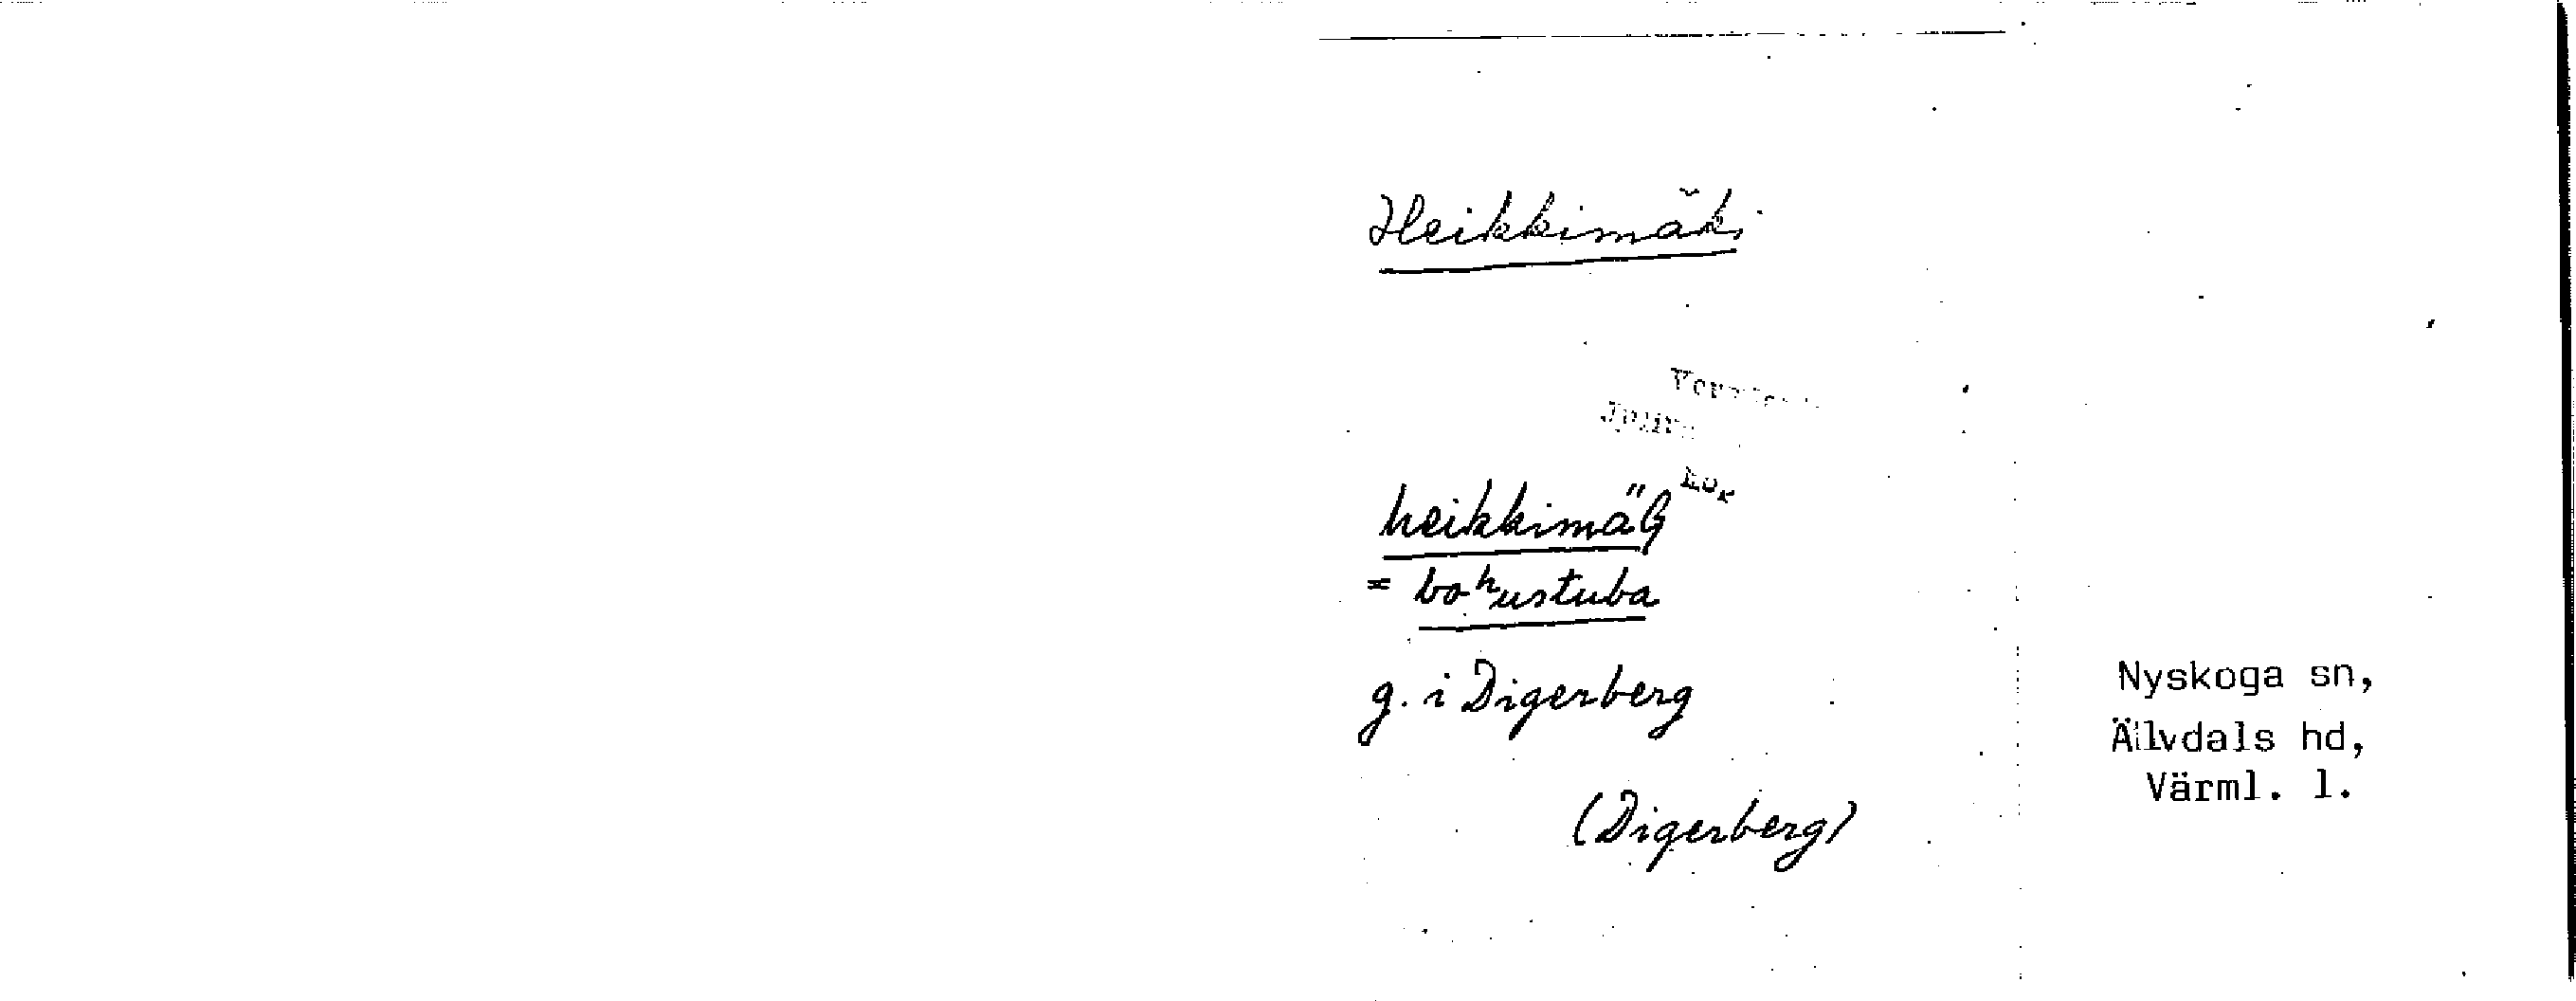 Heikkimäki
= boʰustuba
g. i Digerberg
(Digerberg)
Nyskoga sn,
Älvdals hd,
Värml. l.